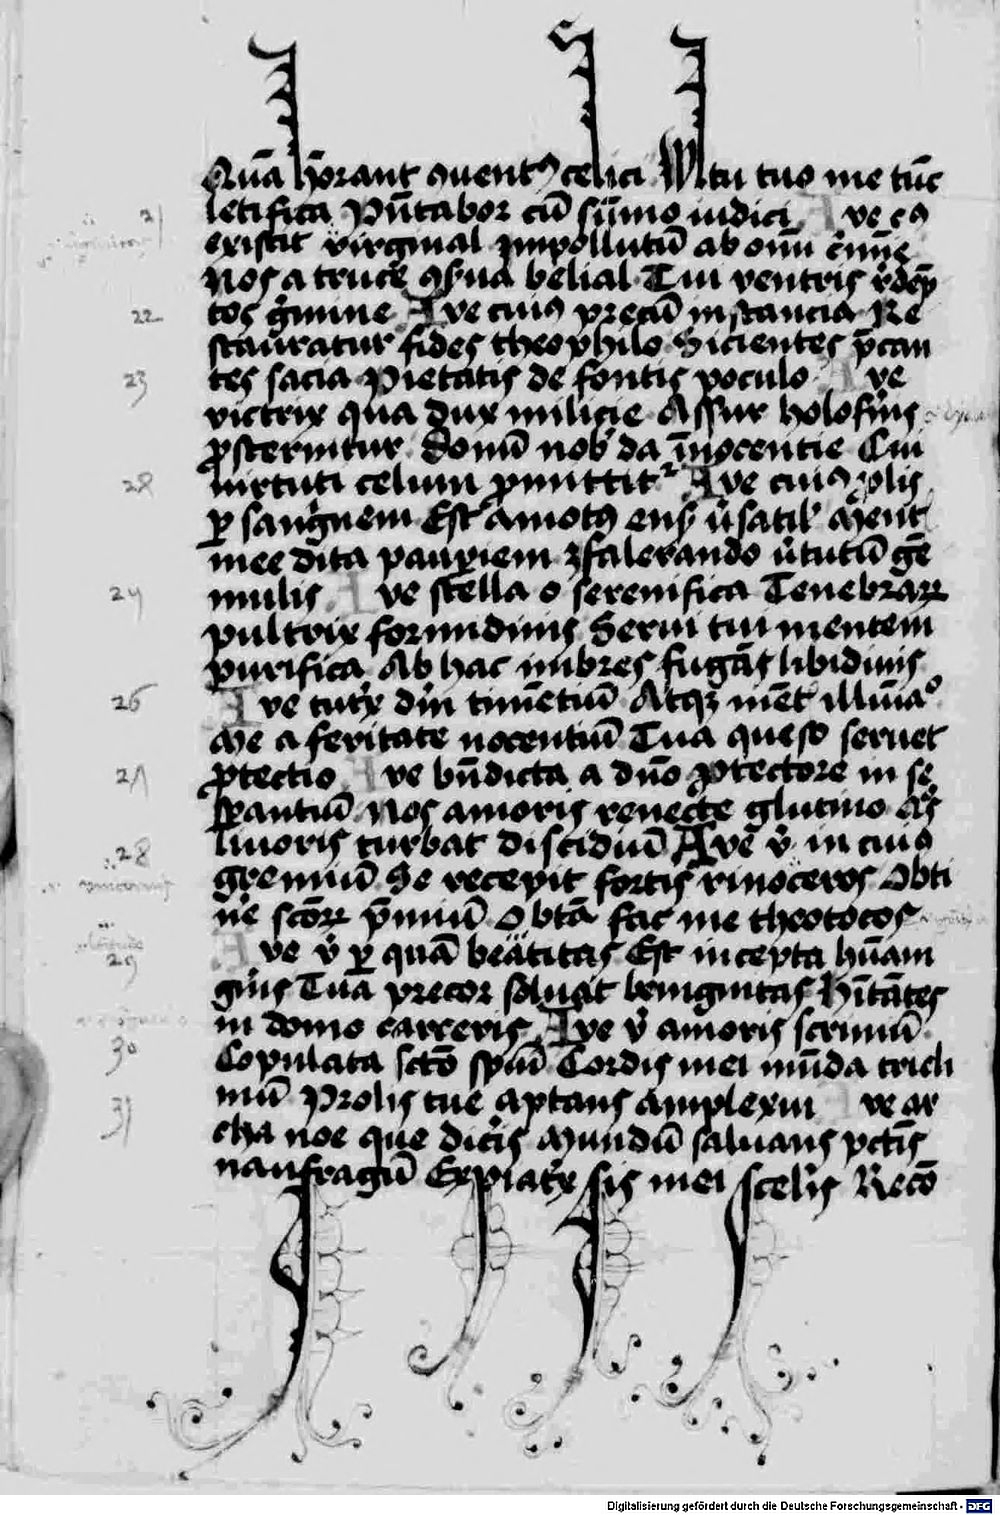 Quā hōrant ꝯuentꝰ celici Wltu tuo me tūc
letifica Pūtabor cū sūmo iudici Ave cꝰ
existit virginal Impollutū ab omī cīmīe
Nos a truce ꝯſua belial Tui ventris rͥdēp
tos gͥmine Ave cuiꝰ precū instancia Re
stauratur fides theophilo Sicientes p̄can
tes sacia Pietatis de fontis poculo Ave
victrix qua dux milicie Assur holofͥnis
ꝓsternitur domū nob̄ da īnocentie Cui
uirtuti celum ꝓmittitͬ Ave cuiꝰ ꝓlis
ꝑ sangͥnem Est amotꝰ ensͥ vͥsatilͥ Ment
mee dita paupiem ꝯfalerando vͥtutū gē
mulis Ave stella o serenifica Tenebraꝝ
pultrix formidinis Serui tui mentem
purifica Ab hac imbres fugās libidinis
Ave turͥx dīn timētiū Atqꝫ mēt illīaᵒ
Me a feritate nocentiū Tua queso seruet
ꝓtectio Ave bn̄dicta a dn̄o ꝓtectore in se
ꝑantiū Nos amoris renecte glutino Qͦs
liuoris turbat discidiū Ave vͥ in cuiꝰ
gremiū Se recepit fortis rinoceros Obti
ne scōꝝ p̄miū Obtā fac me theotocos
Ave vͥ ꝑ quā beatitas Est incepta hūani
gͥnis Tuā precor soluat benignitas Hītātes
in domo carceris Ave vͥ amoris scriniū
Copulata sctō spūi Cordis mei mūda tricli
niū Prolis tue aptans amplexui Ave ar
cha noe que dicͥis Mundū saluans pctīs
naufragū Expiatͥx sis mei scelͥis Recō
21
22
23
28
24
26
27
28
29
30
31
Digitalisierung gefördert durch die Deutsche Forschungsgemeinschaft - DFG